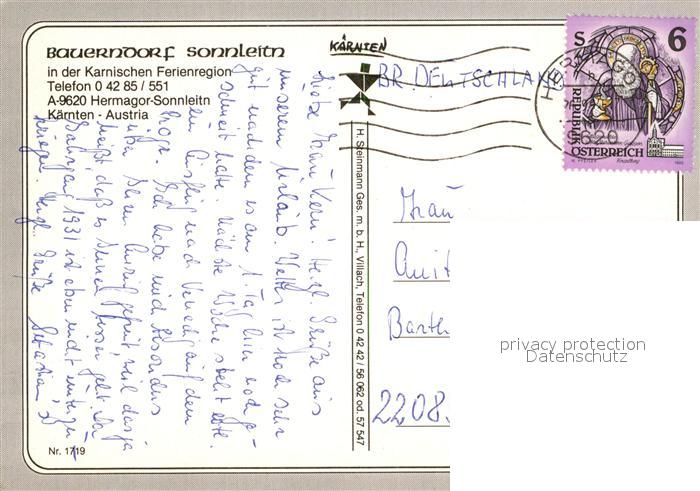 BAUERNDORF SONNLEITN
in der Karnischen Ferienregion
Telefon 0 42 85 / 551
A-9620 Hermagor-Sonnleitn
Kärnten - Austria
KÄRNTEN
BR. DEUTSCHLAND
S 6
REPUBLIK
ÖSTERREICH
9620
H. Steinmann Ges. m. b. H., Villach, Telefon 0 42 42 / 56 062 od. 57 547
Liebe Frau Kern! Herzl. Grüße aus
unserem Urlaub. Wetter ist sehr
gut nachdem es am 1. Tag hier noch ge-
schneit hatte. Nächste Woche steht
ein Ausflug nach Venedig auf dem
Ich habe mich besonders
über Ihren Anruf gefreut, weil das ja
heißt, daß es Ihnen besser geht. Der
Jahrgang 1931 ist eben nicht unterzu-
kriegen. Herzl. Grüße
Frau
Anit
Barte
2208.
privacy protection
Datenschutz
Nr. 1719